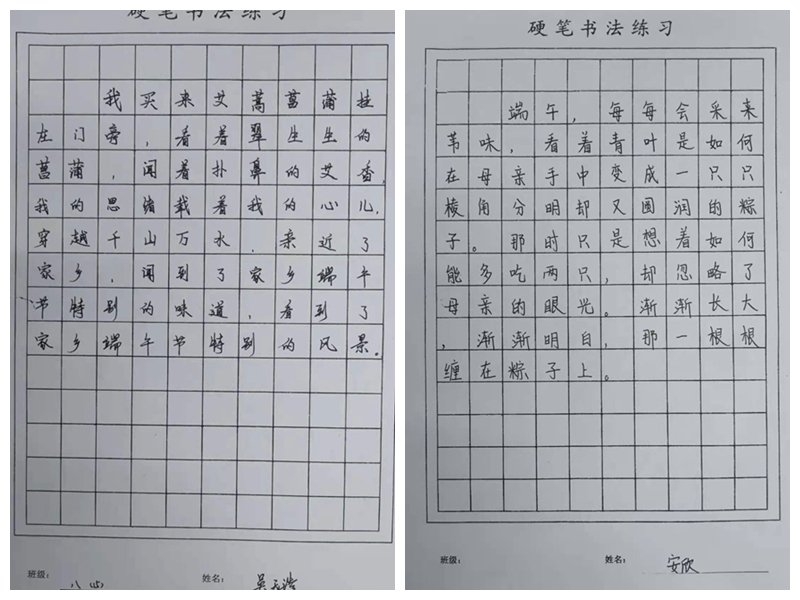 硬笔书法练习
我买来艾蒿菖蒲挂
在门旁，看着翠生生的
菖蒲，闻着扑鼻的艾香，
我的思绪载着我的心儿，
穿越千山万水，亲近了
家乡，闻到了家乡端午
节特别的味道，看到了
家乡端午节特别的风景。
班级：八(4)
姓名：
硬笔书法练习
端午，每每会采来
苇味，看着青叶是如何
在母亲手中变成一只只
棱角分明却又圆润的粽
子。那时只是想着如何
能多吃两只，却忽略了
母亲的眼光。渐渐长大
，渐渐明白，那一根根
缠在粽子上。
班级：
姓名：安欣